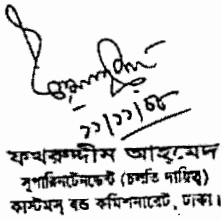 ১১/১১/০৮
ফখরুদ্দীন আহমেদ
সুপারিনটেনডেন্ট (চলতি দায়িত্ব)
কাস্টমস বন্ড কমিশনারেট, ঢাকা।